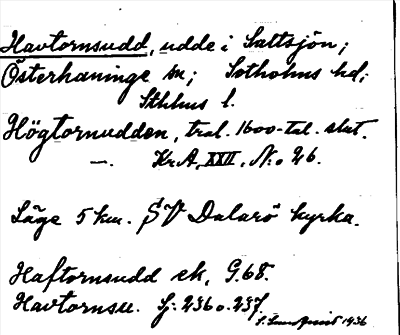 Havtornsudd, udde i Saltsjön;
Österhaninge sn; Sotholms hd;
Sthlms l.
Högtornudden, trol. 1600-tal. slut.
—. Kr.A, XXII, N:o 26.
Läge 5 km. SV Dalarö kyrka.
Haftornsudd ek, G.68.
Havtornsu. Lj. 236 o. 237
S. Lundqvist 1936